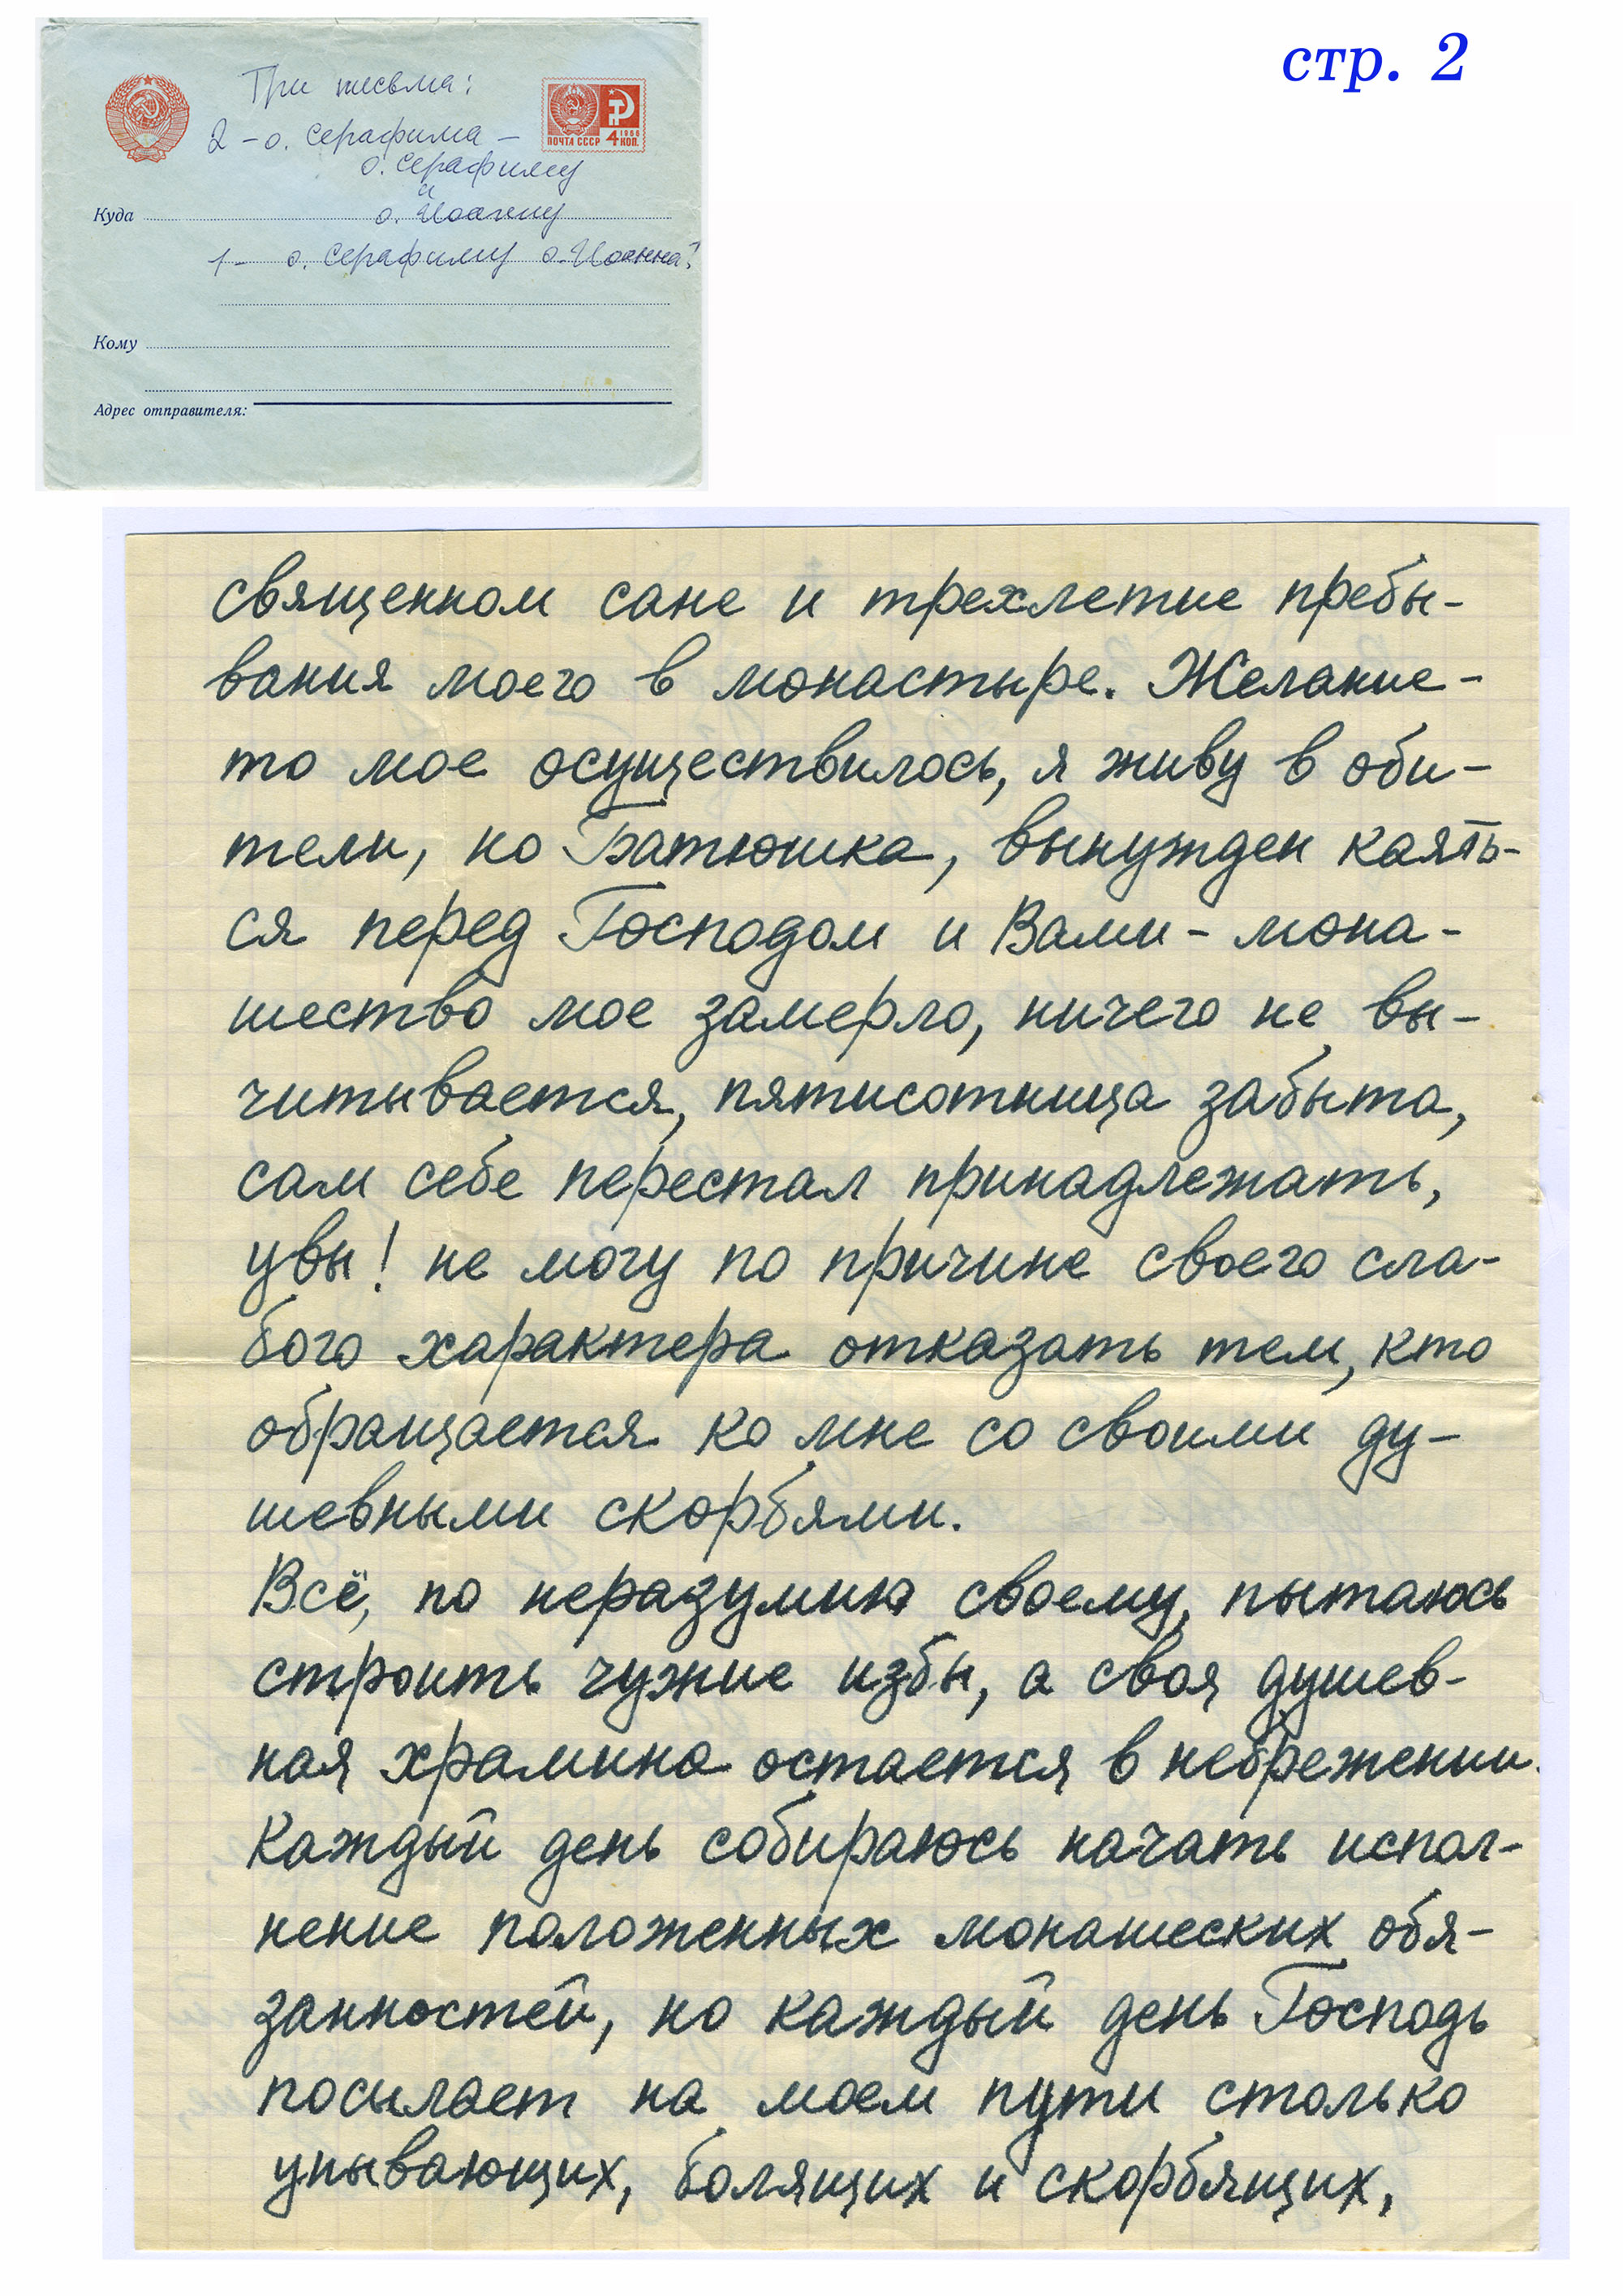 стр. 2
Три письма:
2 - о. Серафима -
о. Серафиму
и
Куда о. Иоанну
1 - о. Серафиму о. Иоанна?
ПОЧТА СССР 4 КОП.
1966
Кому
Адрес отправителя:
священном сане и трехлетие пребы-
вания моего в монастыре. Желание-
то мое осуществилось, я живу в оби-
тели, но Батюшка, вынужден каять-
ся перед Господом и Вами - мона-
шество мое замерло, ничего не вы-
читывается, пятисотница забыта,
сам себе перестал принадлежать,
увы! не могу по причине своего сла-
бого характера отказать тем, кто
обращается ко мне со своими ду-
шевными скорбями.
Всё, по неразумию своему, пытаюсь
строить чужие избы, а своя душев-
ная храмина остается в небрежении.
Каждый день собираюсь начать испол-
нение положенных монашеских обя-
занностей, но каждый день Господь
посылает на моем пути столько
унывающих, болящих и скорбящих,